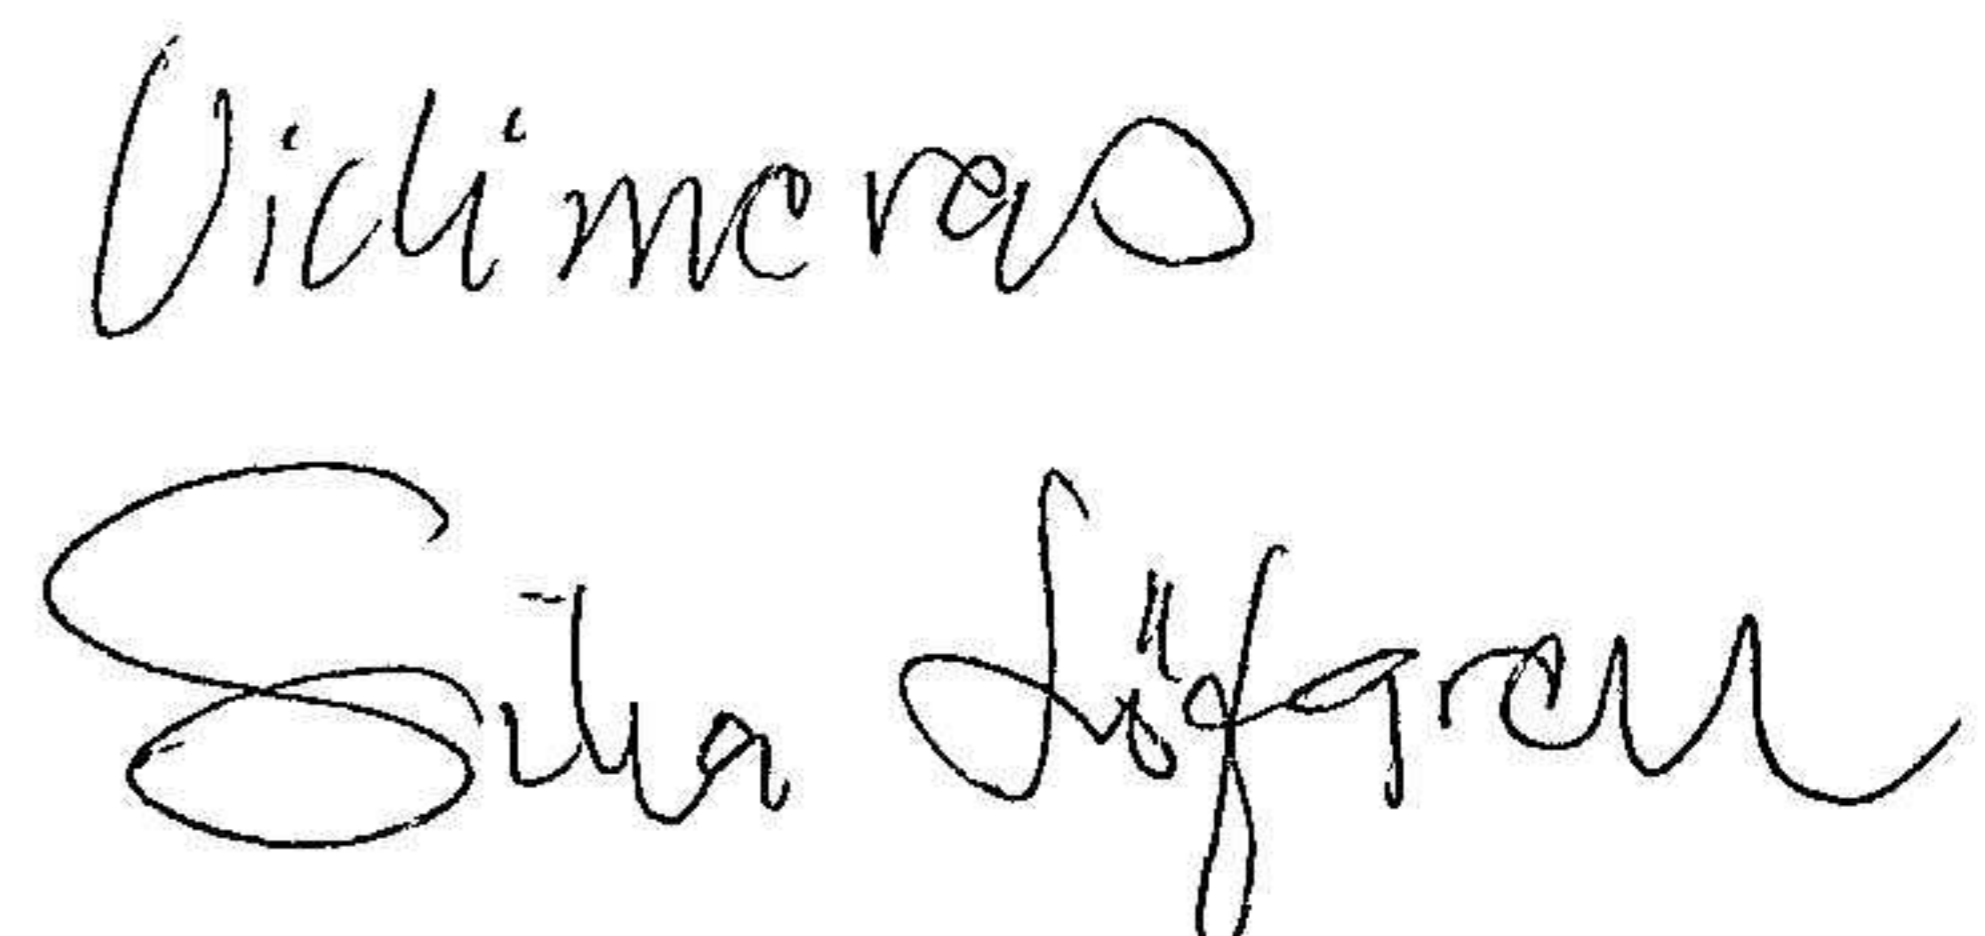 Vidimeras
Silva Löfgren